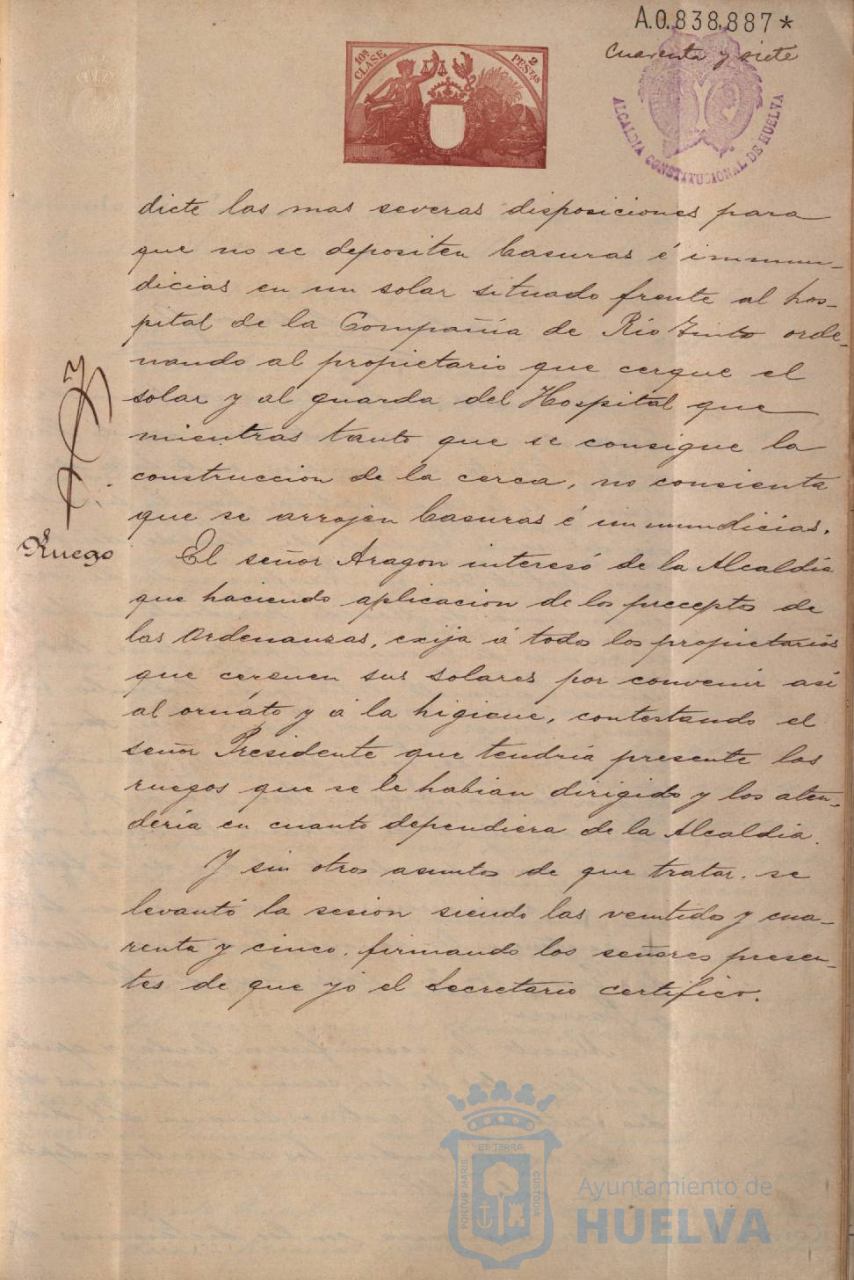 A.0.838.887*
cuarenta y siete
10ª CLASE
2 PESTAS
ALCALDIA CONSTITUCIONAL DE HUELVA
dicte las mas severas disposiciones para
que no se depositen basuras é inmun-
dicias en un solar situado frente al hos-
pital de la Compañia de Rio Tinto orde-
nando al propietario que cerque el
solar y al guarda del Hospital que
mientras tanto que se consigue la
construccion de la cerca, no consienta
que se arrojen basuras é inmundicias.
Ruego
El señor Aragon interesó de la Alcaldia
que haciendo aplicacion de los preceptos de
las Ordenanzas, exija á todos los propietarios
que cerquen sus solares por convenir asi
al ornáto y á la higiene, contestando el
señor Presidente que tendria presente los
ruegos que se le habian dirigido y los aten-
deria en cuanto dependiera de la Alcaldia.
Y sin otros asuntos de que tratar se
levantó la sesion siendo las ventidos y cua-
renta y cinco, firmando los señores presen-
tes de que yo el Secretario certifico.
PORTUS MARIS ET TERRA CUSTODIA
Ayuntamiento de
HUELVA